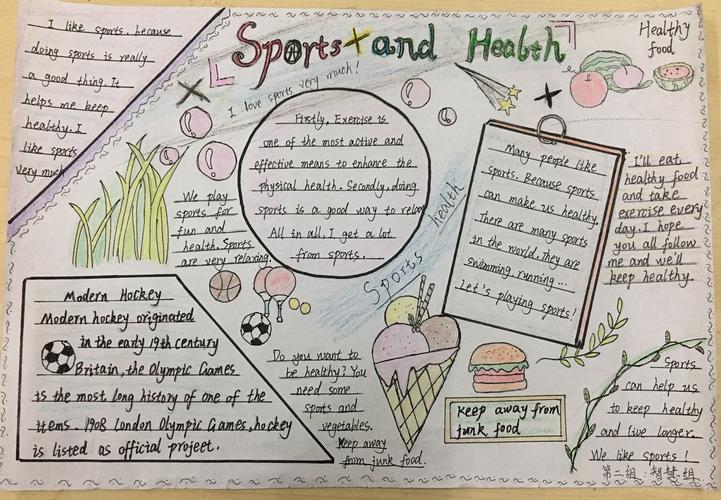 Sports and Health
Healthy
food
I like sports. because
doing sports is really
a good thing. It
helps me keep
healthy. I
like sports
very much
I love sports very much!
Firstly, Exercise is
one of the most active and
effective means to enhance the
physical health. Secondly, doing
sports is a good way to relax
All in all, I get a lot
from sports.
Many people like
sports. Because sports
can make us healthy.
There are many sports
in the world. They are
swimming, running...
Let's playing sports!
I'll eat
healthy food
and take
exercise every
day. I hope
you all follow
me and we'll
keep healthy.
We play
sports for
fun and
health. Sports
are very relaxing.
Sports health
Modern Hockey
Modern hockey originated
in the early 19th century
Britain, the Olympic Games
is the most long history of one of the
items. 1908 London Olympic Games, hockey
is listed as official project.
Do you want to
be healthy? You
need some
spots and
vegetables.
Keep away
from junk food.
keep away from
junk food
Sports
can help us
to keep healthy
and live longer.
We like sports!
第二组:智慧组